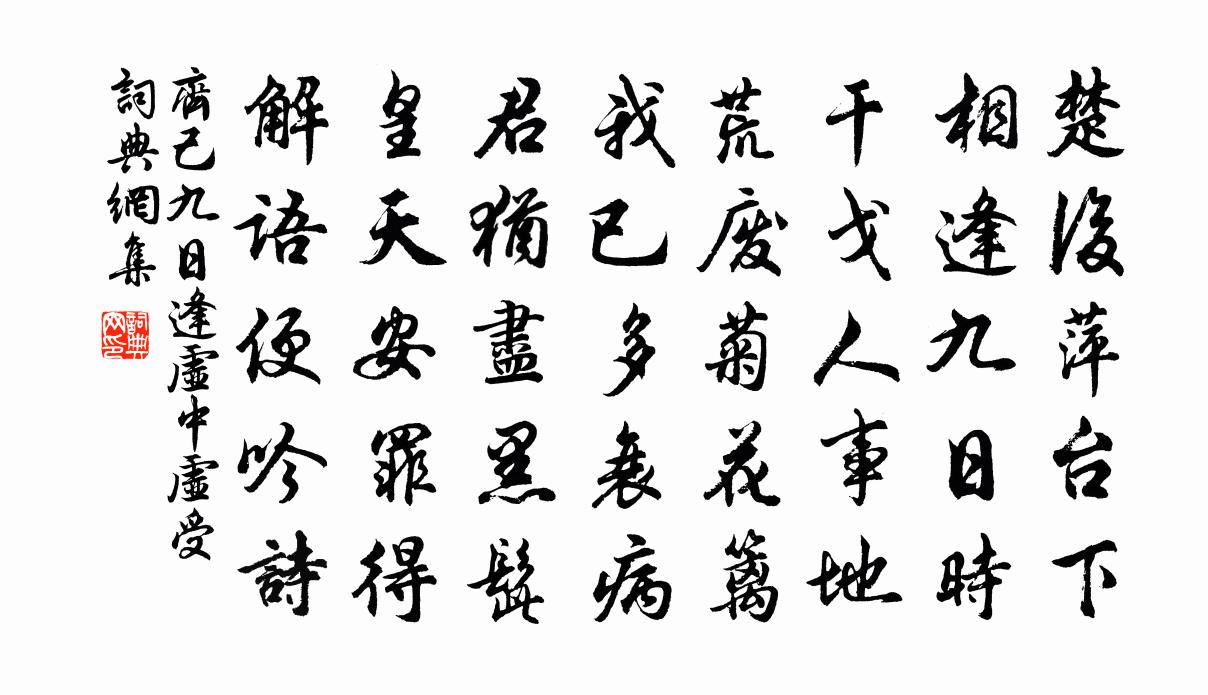 楚後萍台下
相逢九日時
干戈人事地
荒废菊花篱
我已多衰病
君猶盡黑髭
皇天安罪得
解語便吟詩
齊己九日逢虛中虛受
詞典網集
詞典网印